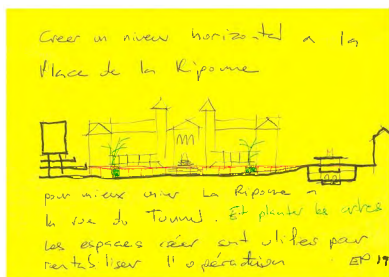 Creer un niveau horizontal a la
Place de la Riponne
pour mieux unir La Riponne a
la rue du Tunnel. Et planter les arbres
Les espaces créer sont utiles pour
rentabiliser l'opération EN 19